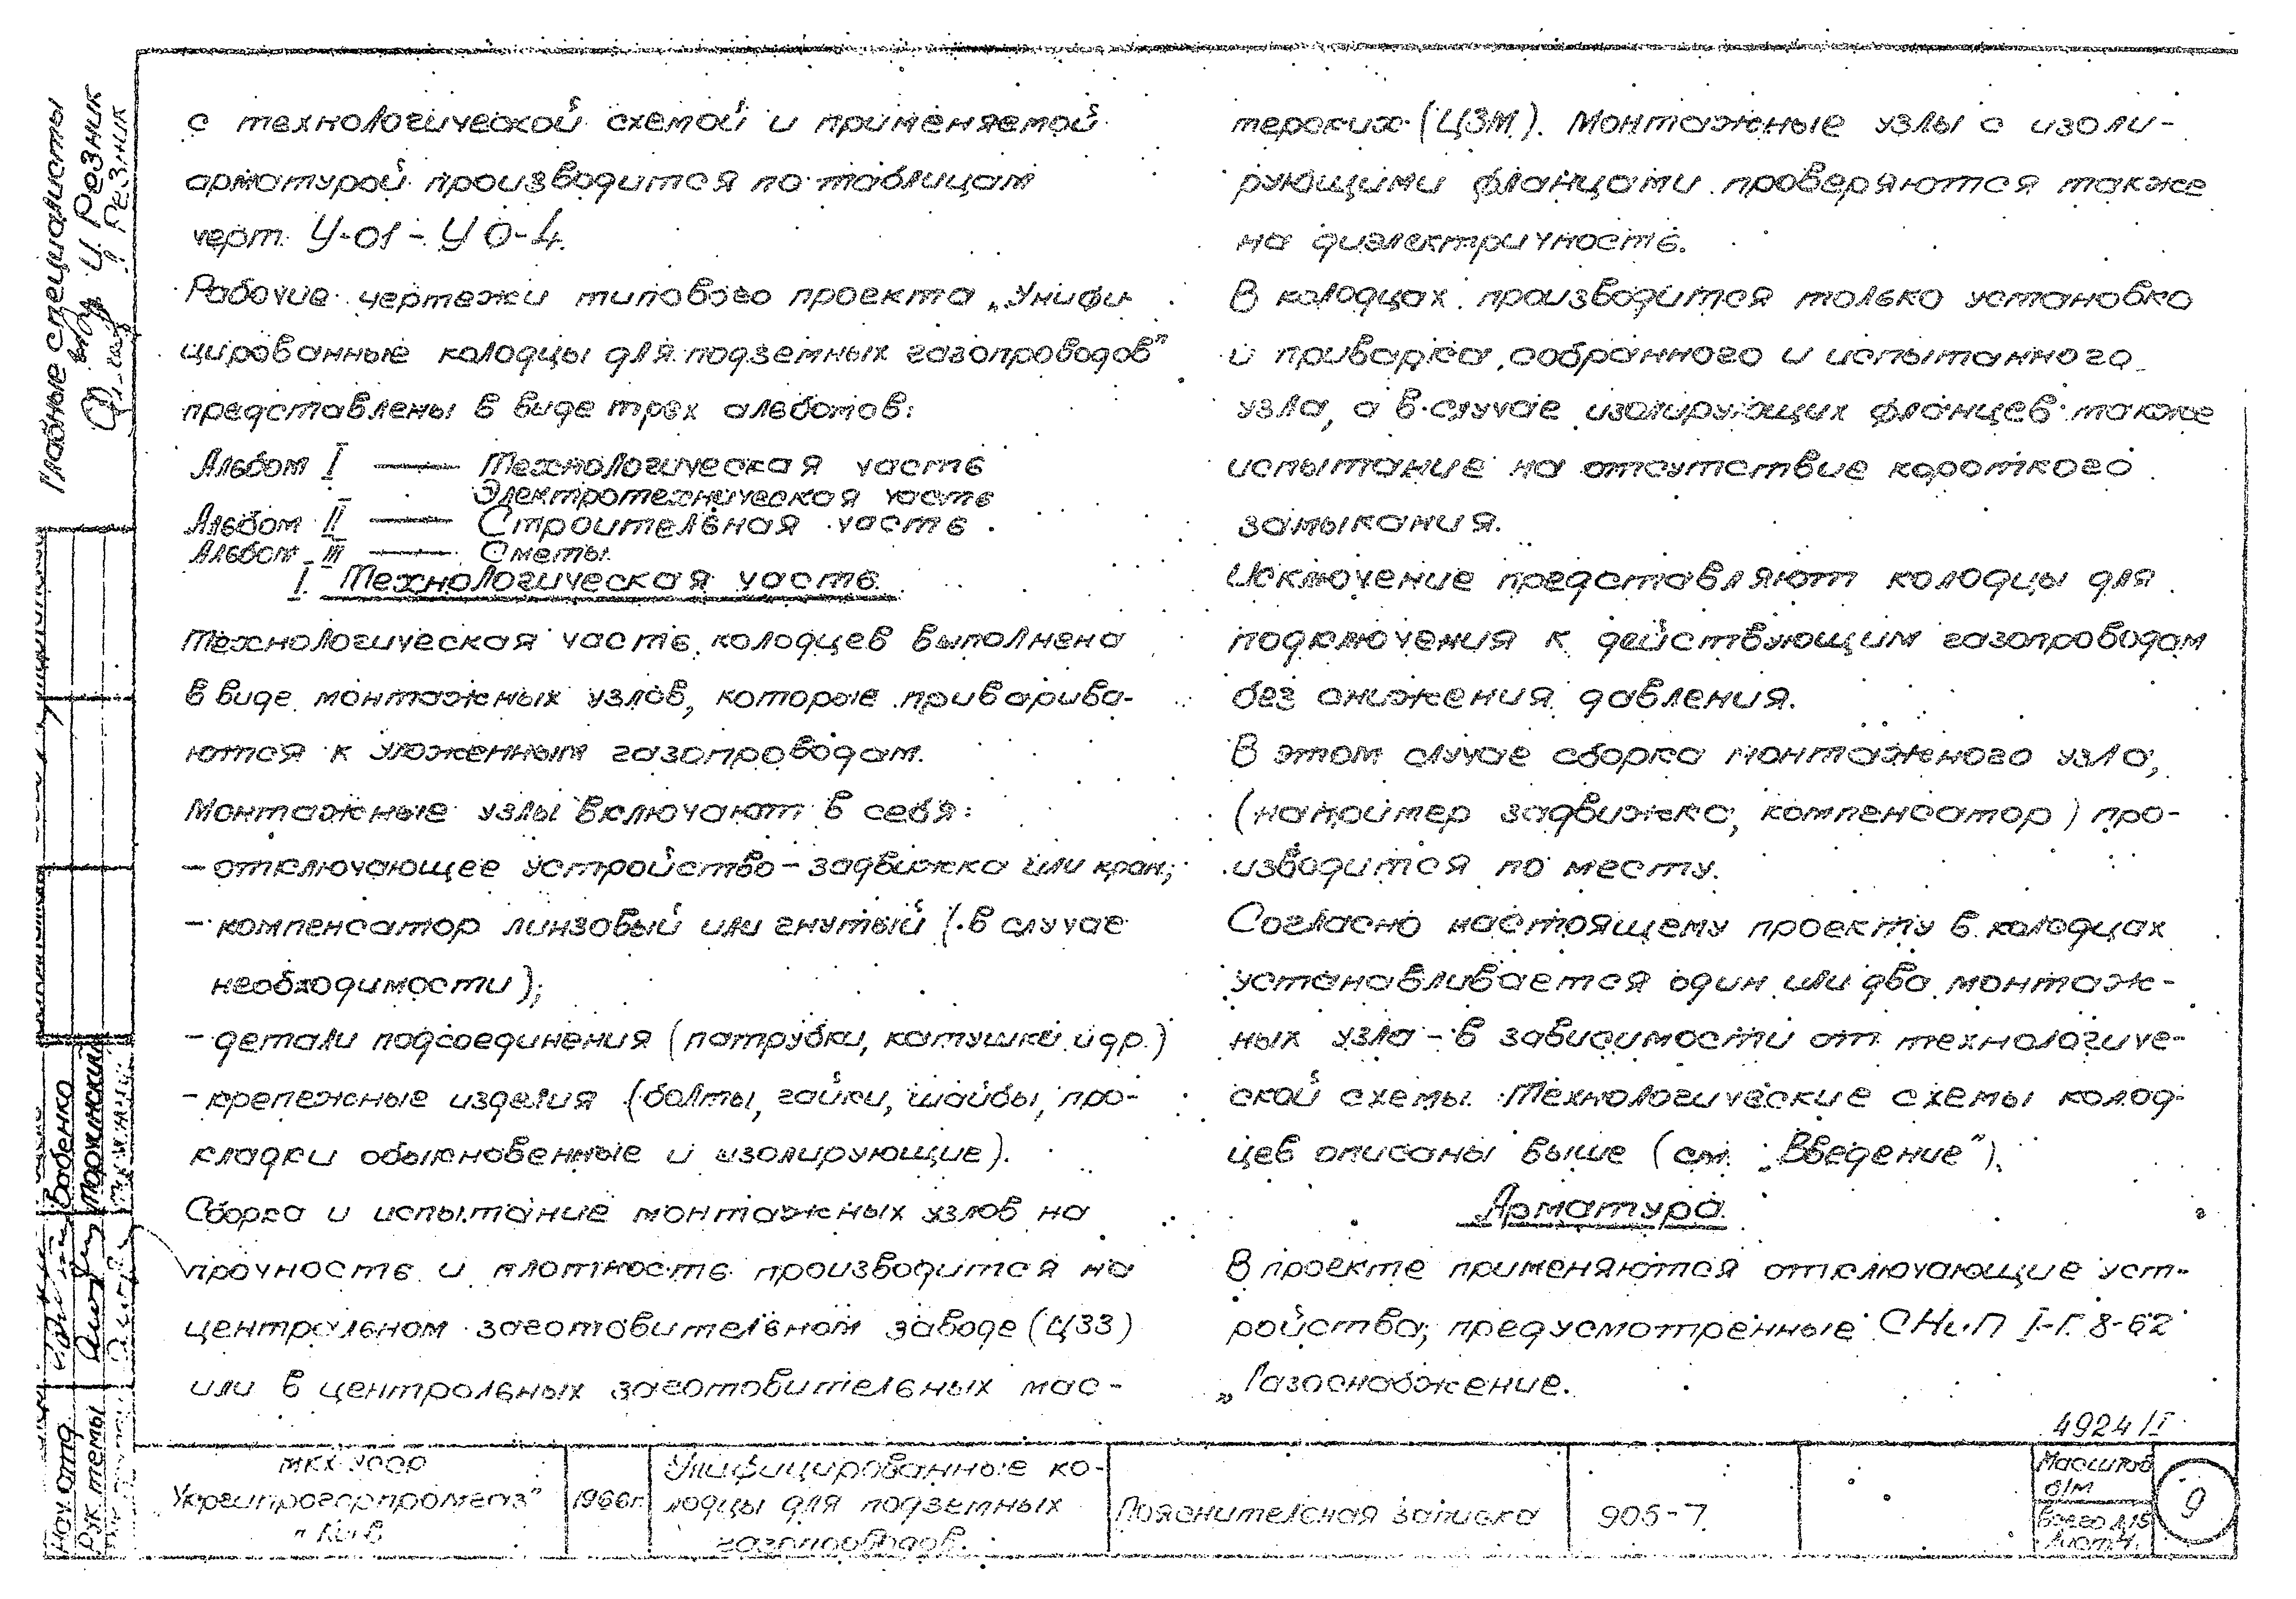 с технологической схемой и применяемой
арматурой производится по таблицам
черт. У-01 - У 0-4.
Рабочие чертежи типового проекта „Унифи
цированные колодцы для подземных газопроводов"
представлены в виде трех альбомов:
Альбом I — Технологическая часть
Электротехническая часть
Альбом II — Строительная часть.
Альбом III — Сметы.
I. Технологическая часть.
Технологическая часть колодцев выполнена
в виде монтажных узлов, которые приварива-
ются к уложенным газопроводам.
Монтажные узлы включают в себя:
- отключающее устройство - задвижка или кран;
- компенсатор линзовый или гнутый (в случае
необходимости);
- детали подсоединения (патрубки, катушки и др.)
- крепежные изделия (болты, гайки, шайбы, про-
кладки обыкновенные и изолирующие).
Сборка и испытание монтажных узлов на
прочность и плотность производится на
центральном заготовительном заводе (ЦЗЗ)
или в центральных заготовительных мас-
терских (ЦЗМ). Монтажные узлы с изоли-
рующими фланцами проверяются также
на диэлектричность.
В колодцах производится только установка
и приварка собранного и испытанного
узла, а в случае изолирующих фланцев также
испытание на отсутствие короткого
замыкания.
Исключение представляют колодцы для
подключения к действующим газопроводам
без снижения давления.
В этом случае сборка монтажного узла,
(например задвижка, компенсатор) про-
изводится по месту.
Согласно настоящему проекту в колодцах
устанавливается один или два монтаж-
ных узла - в зависимости от технологиче-
ской схемы. Технологические схемы колод-
цев описаны выше (см. „Введение").
Арматура
В проекте применяются отключающие уст-
ройства, предусмотренные СНиП I-Г. 8-62
„Газоснабжение.
4924/I
МКХ УССР
Укргипрогорпромгаз"
Киев
1966г.
Унифицированные ко-
лодцы для подземных
газопроводов.
Пояснительная записка
905-7
Масштаб
б/м
Всего л.15
Лист 4.
9
Главные специалисты
Ц Резник
Резник
Нач отд
Бабенко
Рук темы